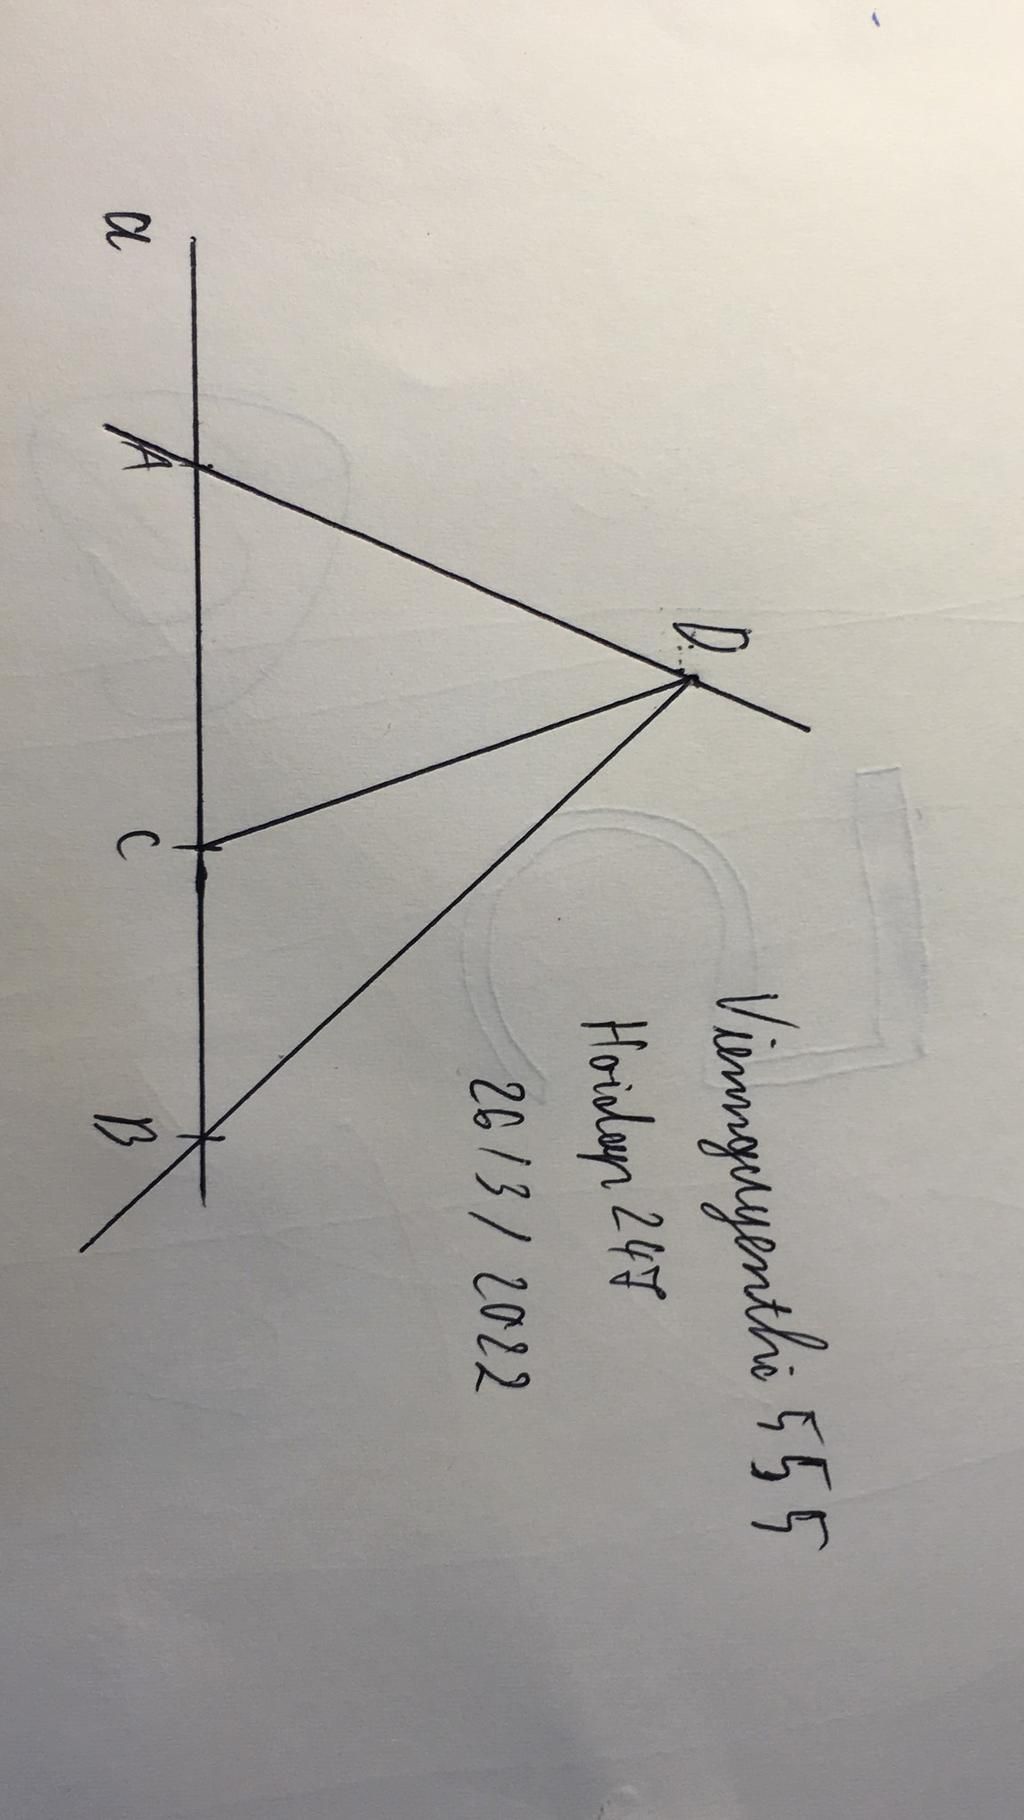 D
Viennguyenthi 555
Hoidap 247
26/3/2022
a
A
C
B